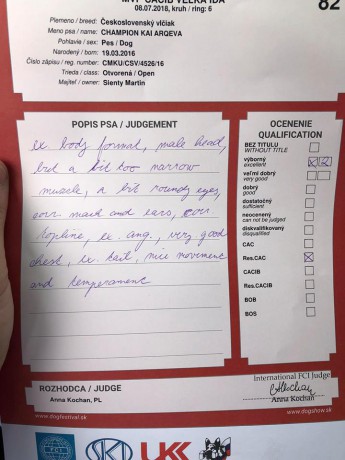 MVP CACIB VEĽKÁ IDA
82
08.07.2018, kruh / ring: 6
Plemeno / breed: Československý vlčiak
Meno psa / name: CHAMPION KAI ARQEVA
Pohlavie / sex: Pes / Dog
Narodený / born: 19.03.2016
Číslo zápisu / reg. number: CMKU/CSV/4526/16
Trieda / class: Otvorená / Open
Majiteľ / owner: Sienty Martin
POPIS PSA / JUDGEMENT
ex body format, male head,
but a bit too narrow
muscle, a bit roundy eyes,
corr mask and ears, corr.
topline, ex. ang., very good
chest, ex tail, nice movement
and temperament
OCENENIE
QUALIFICATION
BEZ TITULU
WITHOUT TITLE
výborný
excellent
X 2
veľmi dobrý
very good
dobrý
good
dostatočný
sufficient
neocenený
can not be judged
diskvalifikovaný
disqualified
CAC
Res.CAC X
CACIB
Res.CACIB
BOB
BOS
ROZHODCA / JUDGE
Anna Kochan, PL
International FCI Judge
Anna Kochan
www.dogfestival.sk
www.dogshow.sk
FCI
SKJ
UKK